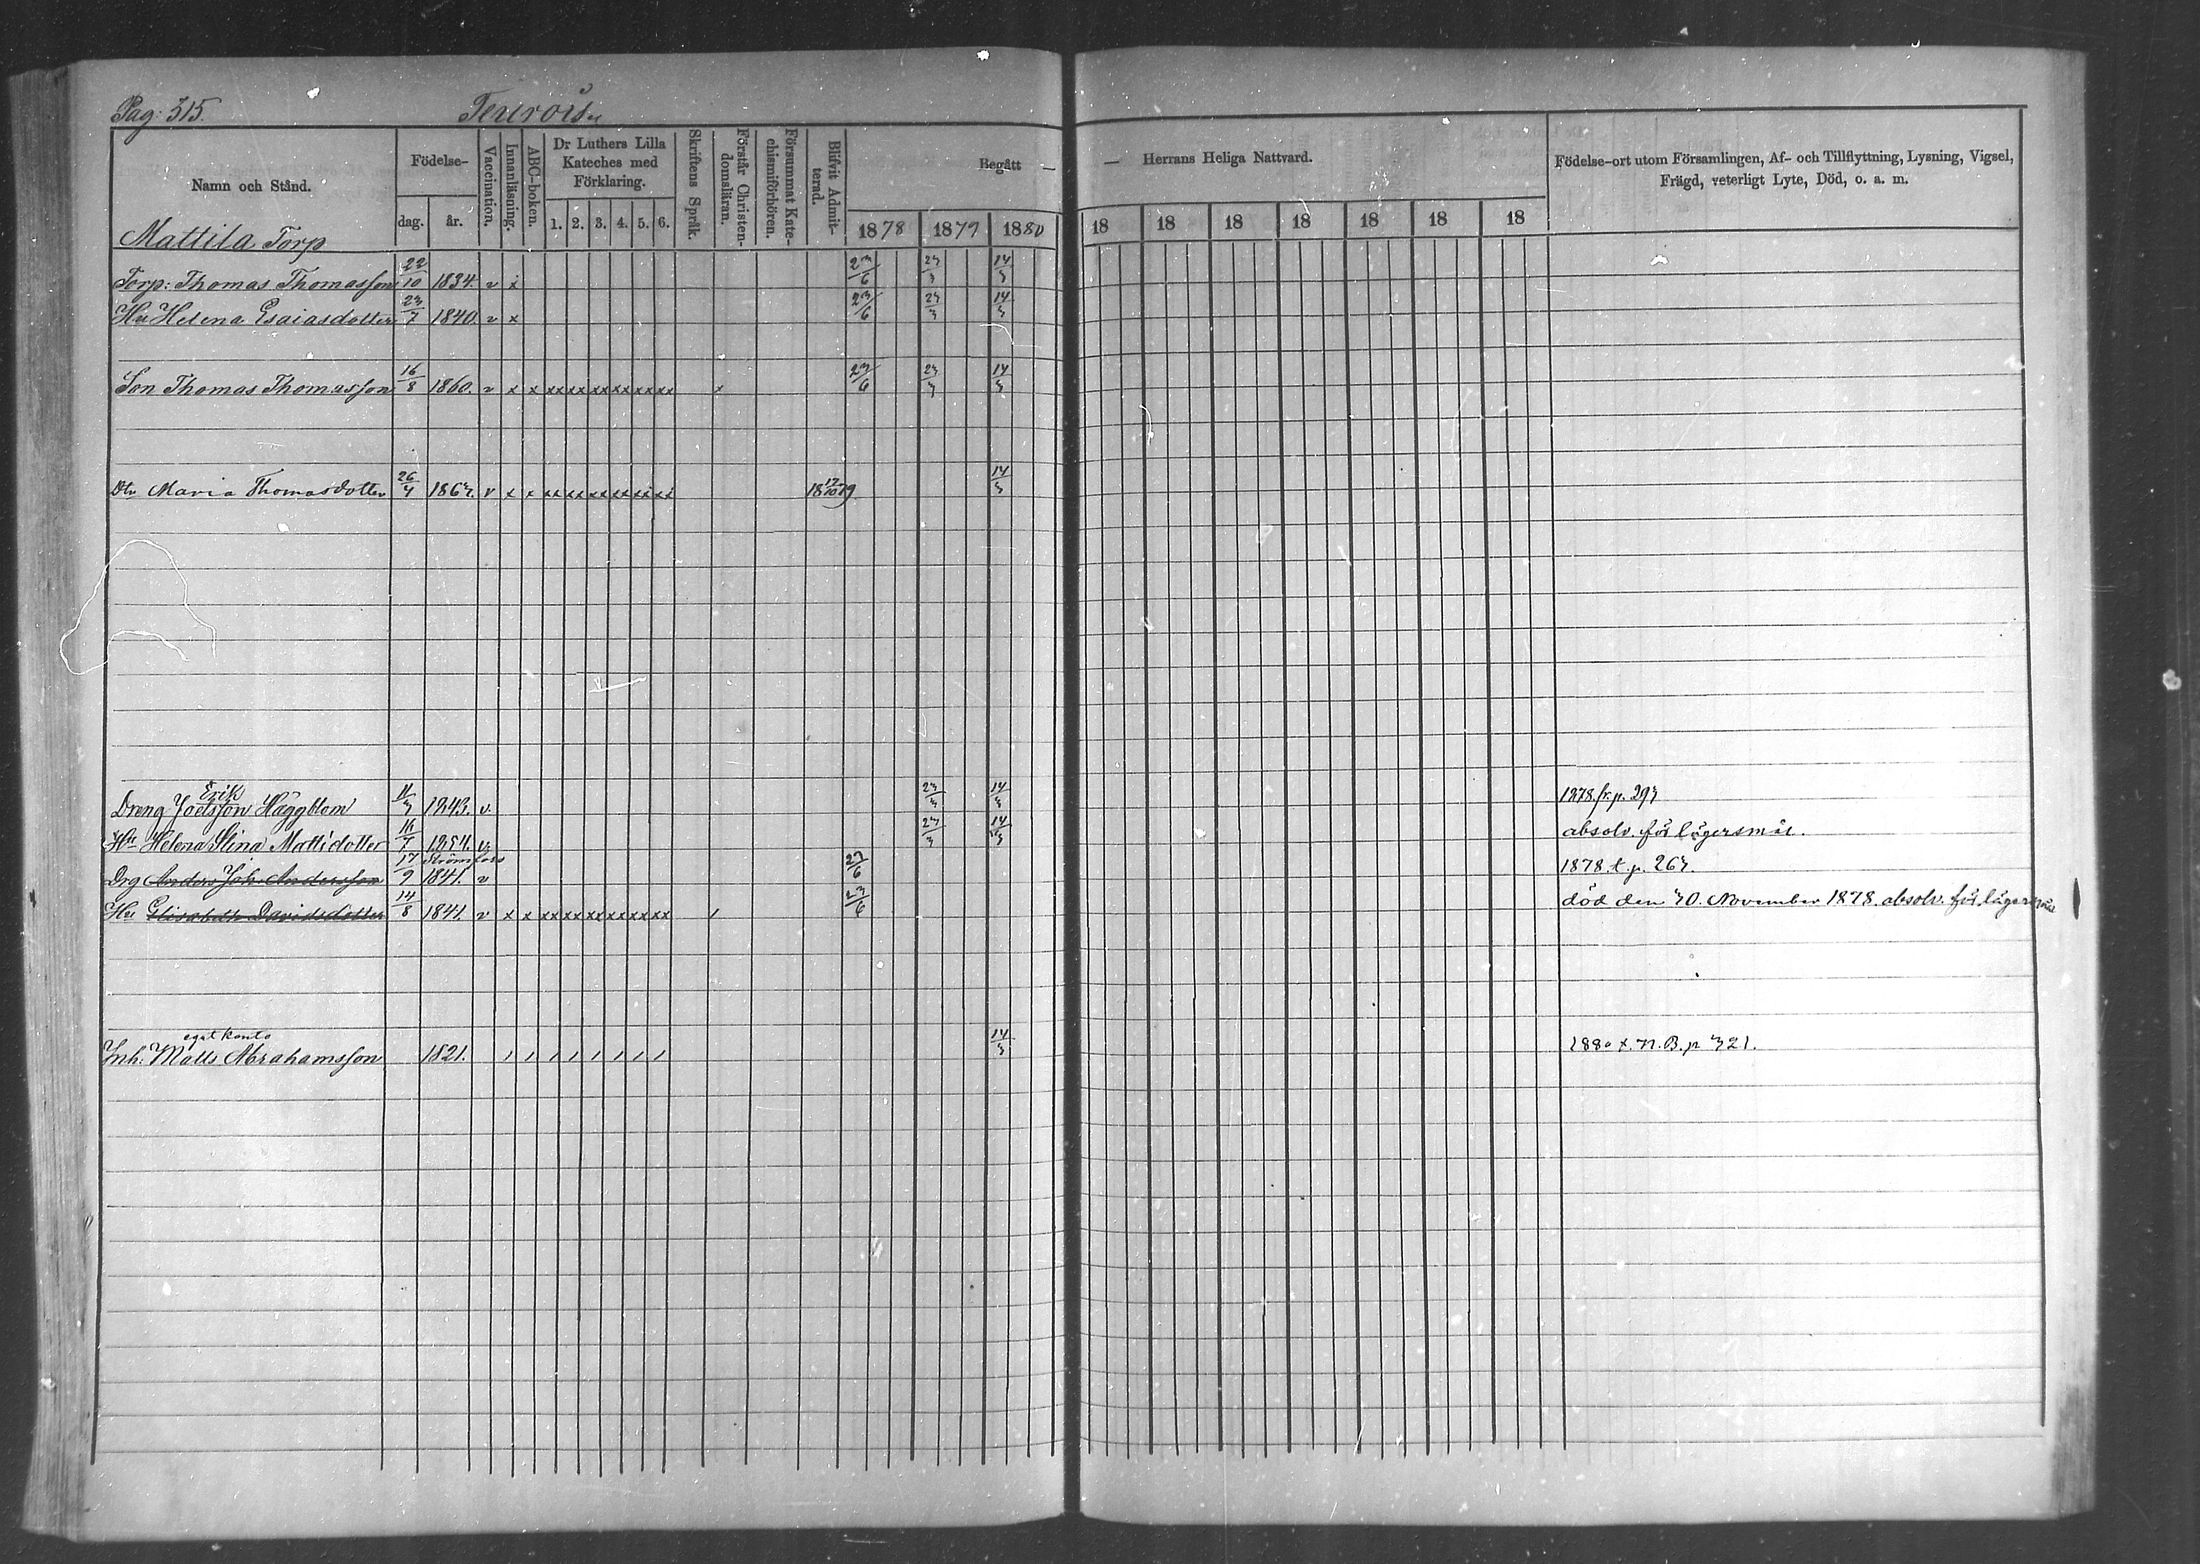 Pag: 315. Teurois
Namn och Stånd. Födelse- dag. år. Vaccination. Innanläsning. ABC-boken. Dr Luthers Lilla Kateches med Förklaring. 1. 2. 3. 4. 5. 6. Skriftens Språk. Förstår Christendomsläran. Försummat Katechismiförhören. Blifvit Admitterad. Begått — — Herrans Heliga Nattvard. 1878 1879 1880 18 18 18 18 18 18 18 Födelse-ort utom Församlingen, Af- och Tillflyttning, Lysning, Vigsel, Frägd, veterligt Lyte, Död, o. a. m.
Mattila Torp
Torp: Thomas Thomasson 22/10 1834. v x 23/6 23/3 14/3
Hu Helena Esaiasdotter 23/7 1840. v x 23/6 23/3 14/3
Son Thomas Thomasson 16/8 1860. v x x xx xx xx xx xx xx x 23/6 23/3 14/3
Dtr Maria Thomasdotter 26/3 1863. v x x xx xx xx xx xx xx 18 12/10 79. 14/3
Erik
Dreng Joelsson Häggblom 11/3 1843. v 23/3 14/3 1878. fr. p. 293
Hu Helena Stina Mattidotter 16/7 1854. v 23/3 14/3 absolv. för lägersmål.
Strömfors
Drg Anders Joh. Andersson 17/9 1841. v 23/6 1878. t. p. 263.
Hu Elisabeth Davidsdotter 14/8 1841. v x x xx xx xx xx xx xx / 23/6 död den 30. November 1878. absolv. för lägersmål
eget konto
Inh: Matts Abrahamsson 1821. / / / / / / / / 14/3 1880 t. N. B. p 321.